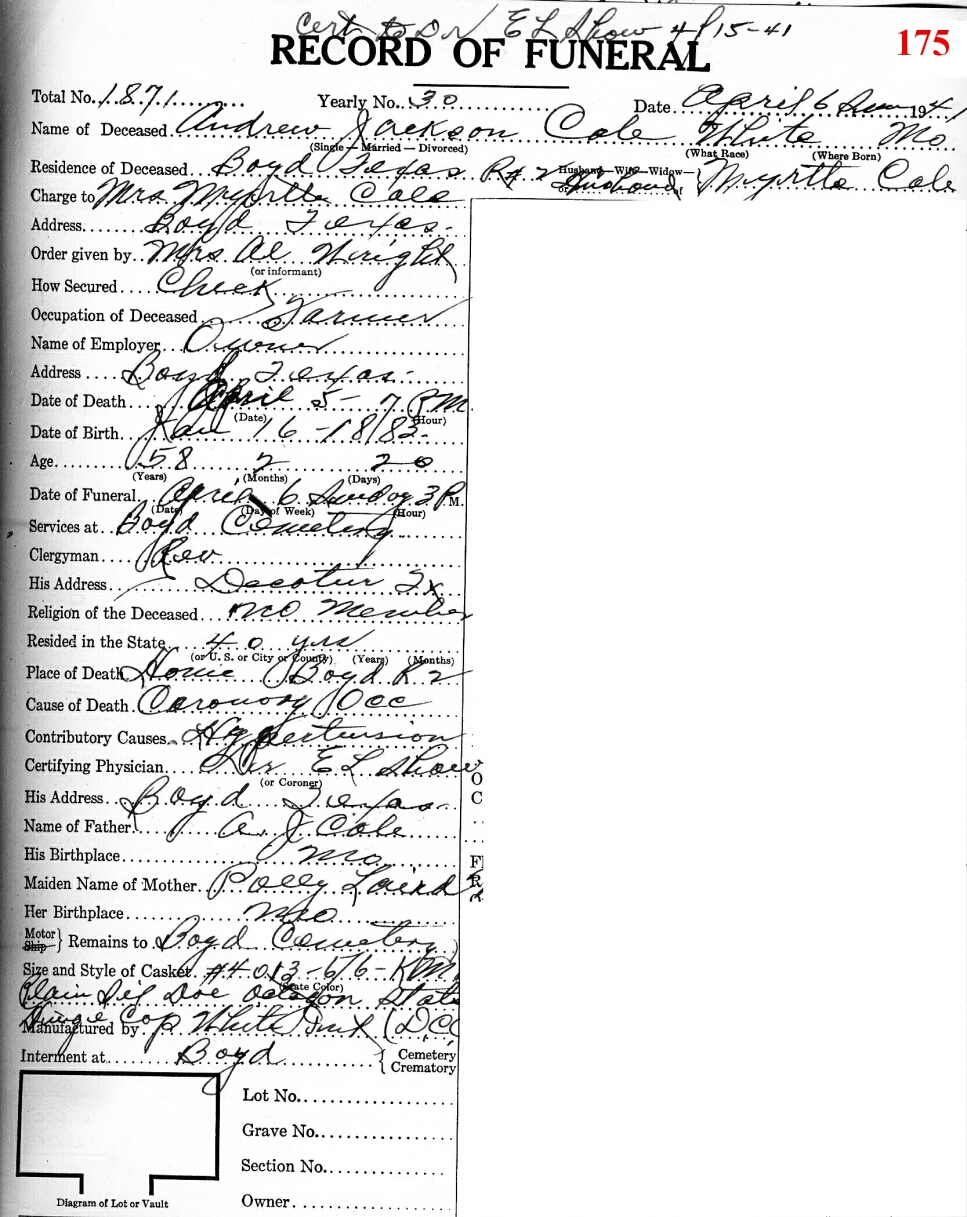 Cert to Dr E L Show 4/15-41
175
RECORD OF FUNERAL
Total No. 1871 Yearly No. 30 Date April 6 Sun 1941
Name of Deceased Andrew Jackson Cole White Mo
(Single — Married — Divorced) (What Race) (Where Born)
Residence of Deceased Boyd Texas R# 2 Husband—Wife—Widow— Husband of Myrtle Cole
Charge to Mrs Myrtle Cole
Address Boyd Texas.
Order given by Mrs Al Wright
(or informant)
How Secured Check
Occupation of Deceased Farmer
Name of Employer Owner
Address Boyd Texas.
Date of Death April 5 - 7 P.M.
(Date) (Hour)
Date of Birth Jan 16 - 1883
Age 58 2 20
(Years) (Months) (Days)
Date of Funeral April 6 Sunday 3 P.M.
(Date) (Day of Week) (Hour)
Services at Boyd Cemetery
Clergyman Rev
His Address Decatur Tx
Religion of the Deceased no Member
Resided in the State 40 yrs
(or U. S. or City or County) (Years) (Months)
Place of Death Home Boyd R 2
Cause of Death Coronory Occ
Contributory Causes Hypertension
Certifying Physician Dr E L Show
(or Coroner)
O
His Address Boyd Texas
C
Name of Father A. J Cole
His Birthplace Mo
F
Maiden Name of Mother Polly Laird
R
Her Birthplace Mo
Motor Ship } Remains to Boyd Cemetery
Size and Style of Casket #4013 - 6/6 - K M
(State Color)
Plain Sil Doe Octagon State
Manufactured by Cop White Tink (DCC
Interment at Boyd { Cemetery
Crematory
Lot No.
Grave No.
Section No.
Diagram of Lot or Vault
Owner